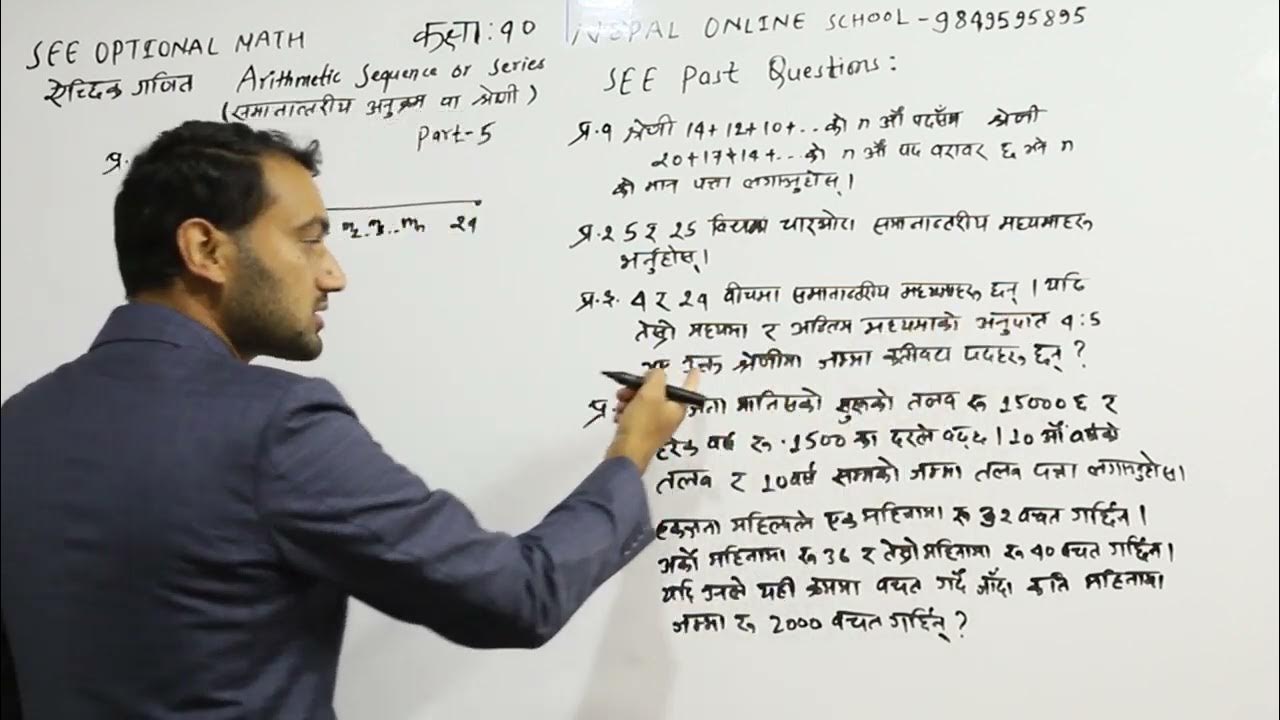 SEE OPTIONAL MATH
कक्षा: १०
NEPAL ONLINE SCHOOL - 9849595895
ऐच्छिक गणित
Arithmetic Sequence or Series
(समानान्तरीय अनुक्रम वा श्रेणी)
Part-5
प्र.
m₂ .. mn २९
SEE Past Questions:
प्र.१ श्रेणी 14+12+10+..को n औं पदसँग श्रेणी
20+17+14+...को n औं पद बराबर छ भने n
को मान पत्ता लगाउनुहोस्।
प्र.२ 5 र 25 बिचमा चारओटा समानान्तरीय मध्यमाहरू
भर्नुहोस्।
प्र.३. ४ र २९ बीचमा समानान्तरीय मध्यमाहरू छन्। यदि
तेस्रो मध्यमा र अन्तिम मध्यमाको अनुपात १:5
उक्त श्रेणीमा जम्मा कतिवटा पदहरू छन्?
प्र. मानिसको सुरूको तलब रू 15000 छ र
हरेक वर्ष रू. 1500 का दरले बढ्छ। 10 औं वर्षको
तलब र 10 वर्ष सम्मको जम्मा तलब पत्ता लगाउनुहोस्।
एकजना महिलाले एक महिनामा रू 32 बचत गर्छिन्।
अर्को महिनामा रू 36 र तेस्रो महिनामा रू 40 बचत गर्छिन्।
यदि उनले यही क्रममा बचत गर्दै जाँदा कति महिनामा
जम्मा रू 2000 बचत गर्छिन्?